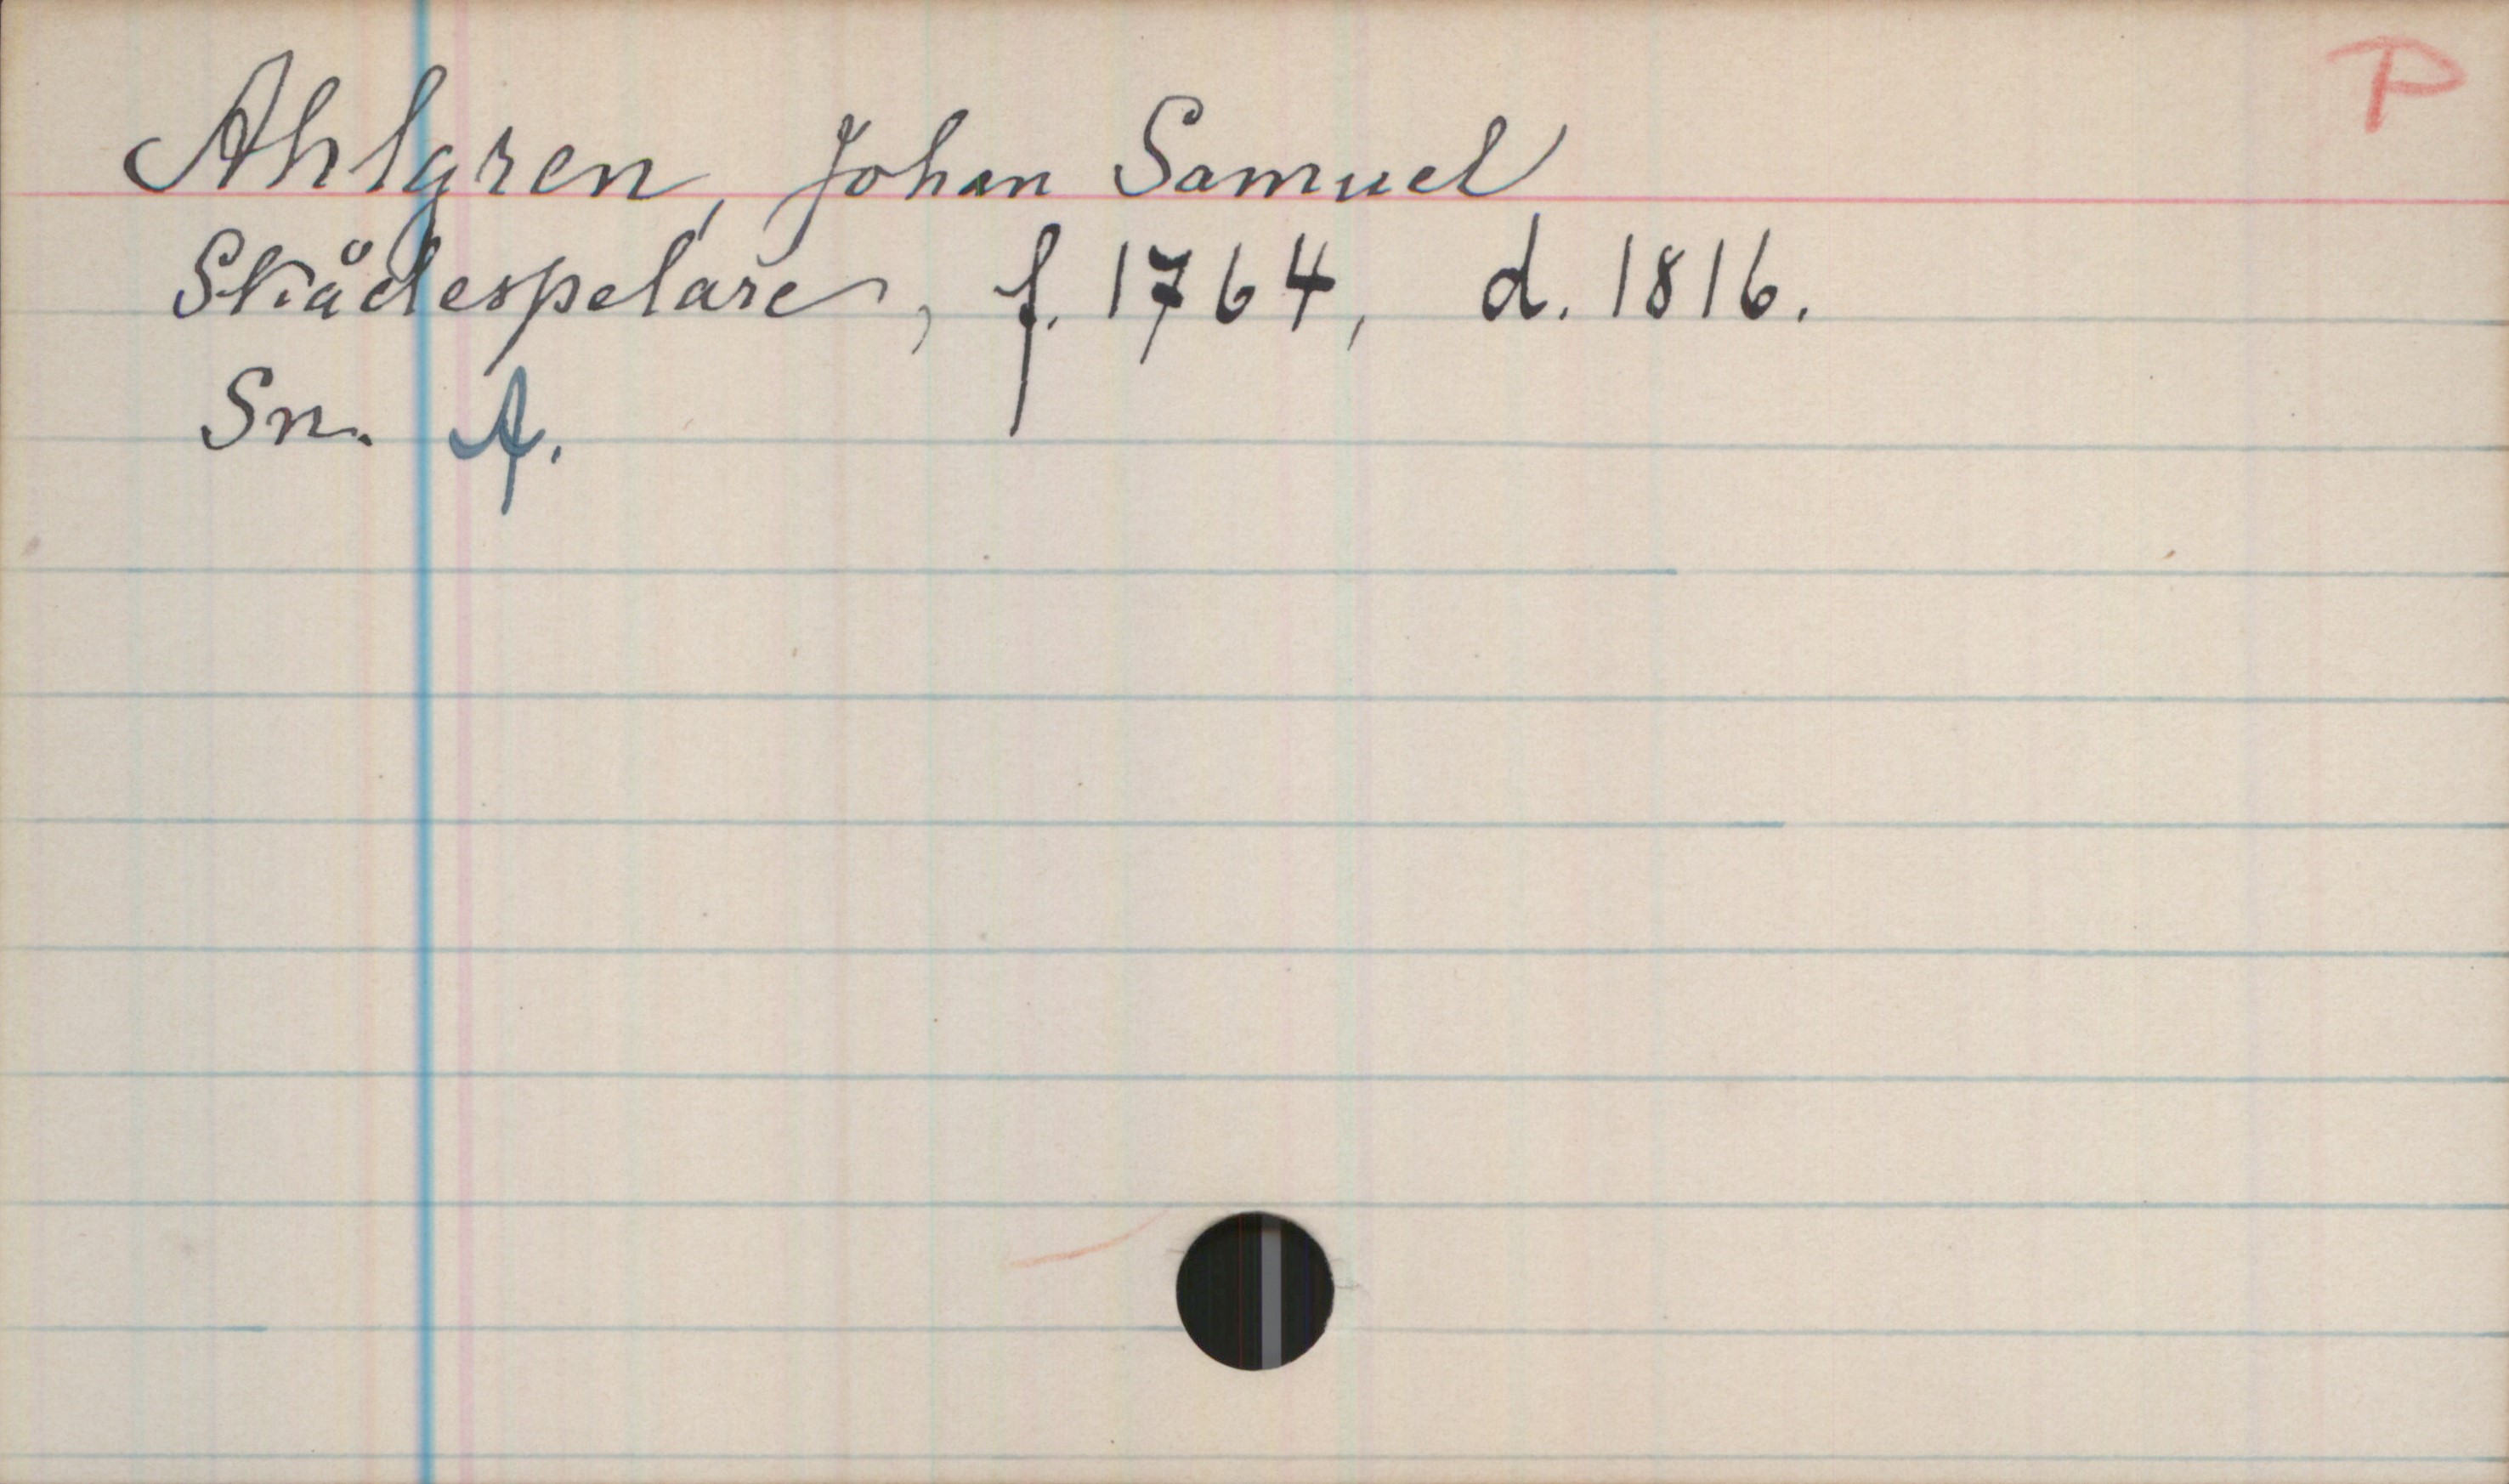 P
Ahlgren, Johan Samuel
Skådespelare, f. 1764, d. 1816.
Sn. A.